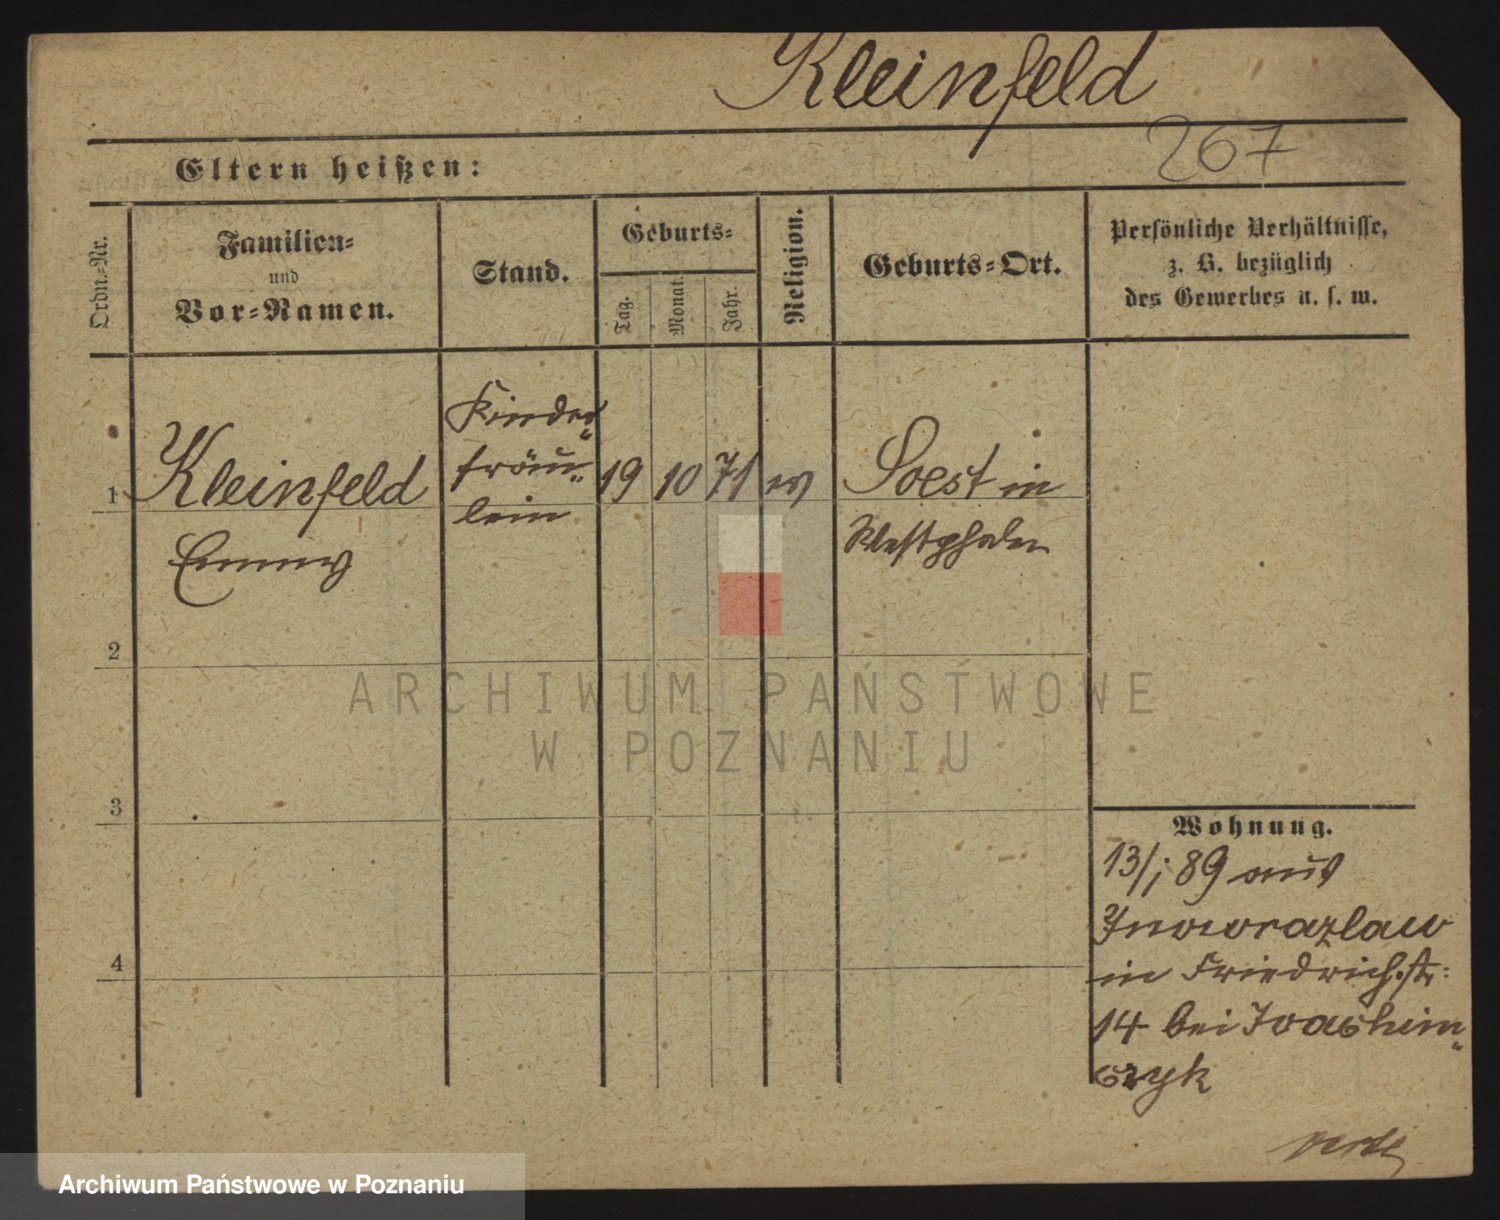 Kleinfeld
267
Eltern heißen:
Ordn.-Nr.
Familien-
und
Vor-Namen.
Stand.
Geburts-
Tag.
Monat.
Jahr.
Religion.
Geburts-Ort.
Persönliche Verhältnisse,
z. B. bezüglich
des Gewerbes u. s. w.
1
Kleinfeld
Emmy
Kinder-
fräu-
lein
19
10
71
Soest in
Westphalen
2
3
4
Wohnung.
13/1 89 aus
Inowrazlaw
in Friedrichstr:
14 bei Joachim-
czyk
ARCHIWUM PAŃSTWOWE
W POZNANIU
Archiwum Państwowe w Poznaniu